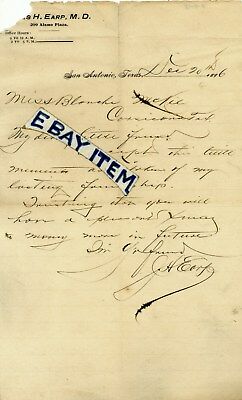 s H. EARP, M. D.
209 Alamo Plaza.
Office Hours:
San Antonio, Texas, Dec 20th 1896
Miss Blanche McKee
Corsicana Tex
My dear little friend
accept this little
memento as a token of my
lasting friendship.
Trusting that you will
have a pleasant Xmas
many more in future
I'm yr friend
J H Earp
EBAY ITEM